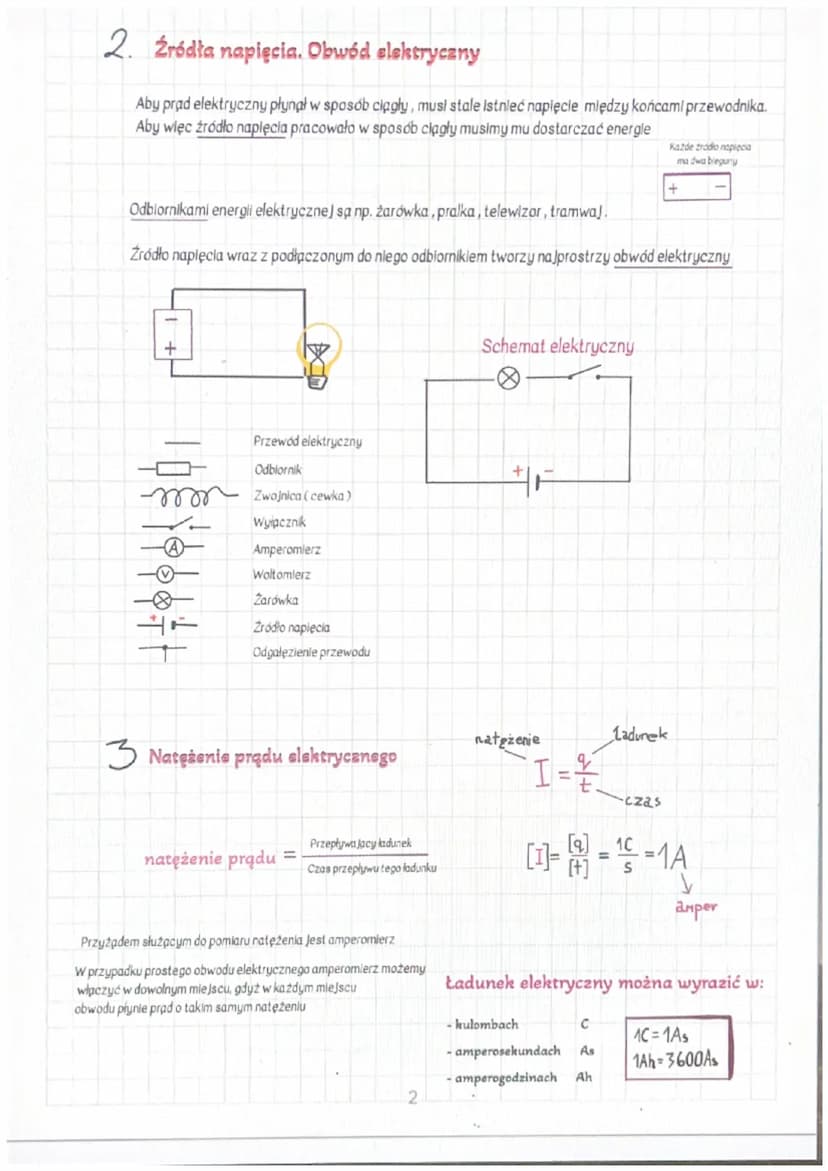 2. Źródła napięcia. Obwód elektryczny
Aby prąd elektryczny płynął w sposób ciągły, musi stale istnieć napięcie między końcami przewodnika.
Aby więc źródło napięcia pracowało w sposób ciągły musimy mu dostarczać energie
Każde źródło napięcia
ma dwa bieguny
+ −
Odbiornikami energii elektrycznej są np. żarówka, pralka, telewizor, tramwaj.
Źródło napięcia wraz z podłączonym do niego odbiornikiem tworzy najprostrzy obwód elektryczny
−
+
Schemat elektryczny
+ −
Przewód elektryczny
Odbiornik
Zwojnica (cewka)
Wyłącznik
A Amperomierz
V Woltomierz
Żarówka
+ − Źródło napięcia
Odgałęzienie przewodu
3 Natężenie prądu elektrycznego
natężenie
ładunek
I = q/t
czas
natężenie prądu = Przepływający ładunek / Czas przepływu tego ładunku
[I] = [q]/[t] = 1C/s = 1A
amper
Przyżądem służącym do pomiaru natężenia jest amperomierz
W przypadku prostego obwodu elektrycznego amperomierz możemy
włączyć w dowolnym miejscu, gdyż w każdym miejscu
obwodu płynie prąd o takim samym natężeniu
Ładunek elektryczny można wyrazić w:
- kulombach C
- amperosekundach As
- amperogodzinach Ah
1C = 1As
1Ah = 3600As
2